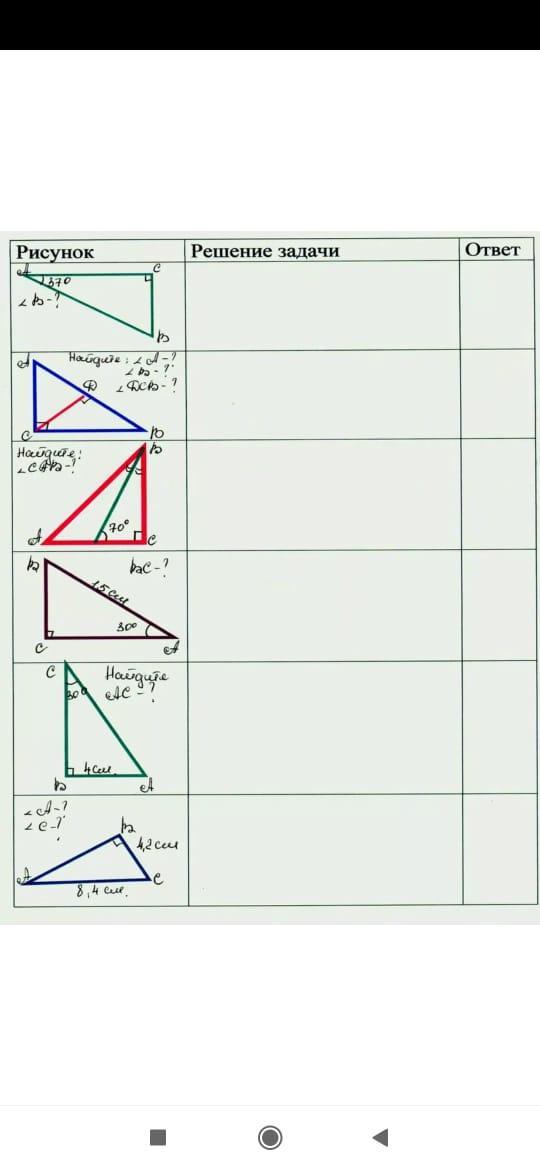 Рисунок
Решение задачи
Ответ
A
C
37°
∠B-?
B
A
Найдите: ∠A-?
∠B-?
∠DCB-?
D
C
B
Найдите:
B
70°
A
C
B
BC-?
15 см
30°
C
A
C
Найдите
AC-?
30°
4 см.
B
A
∠A-?
∠C-?
B
4,2 см
A
C
8,4 см.